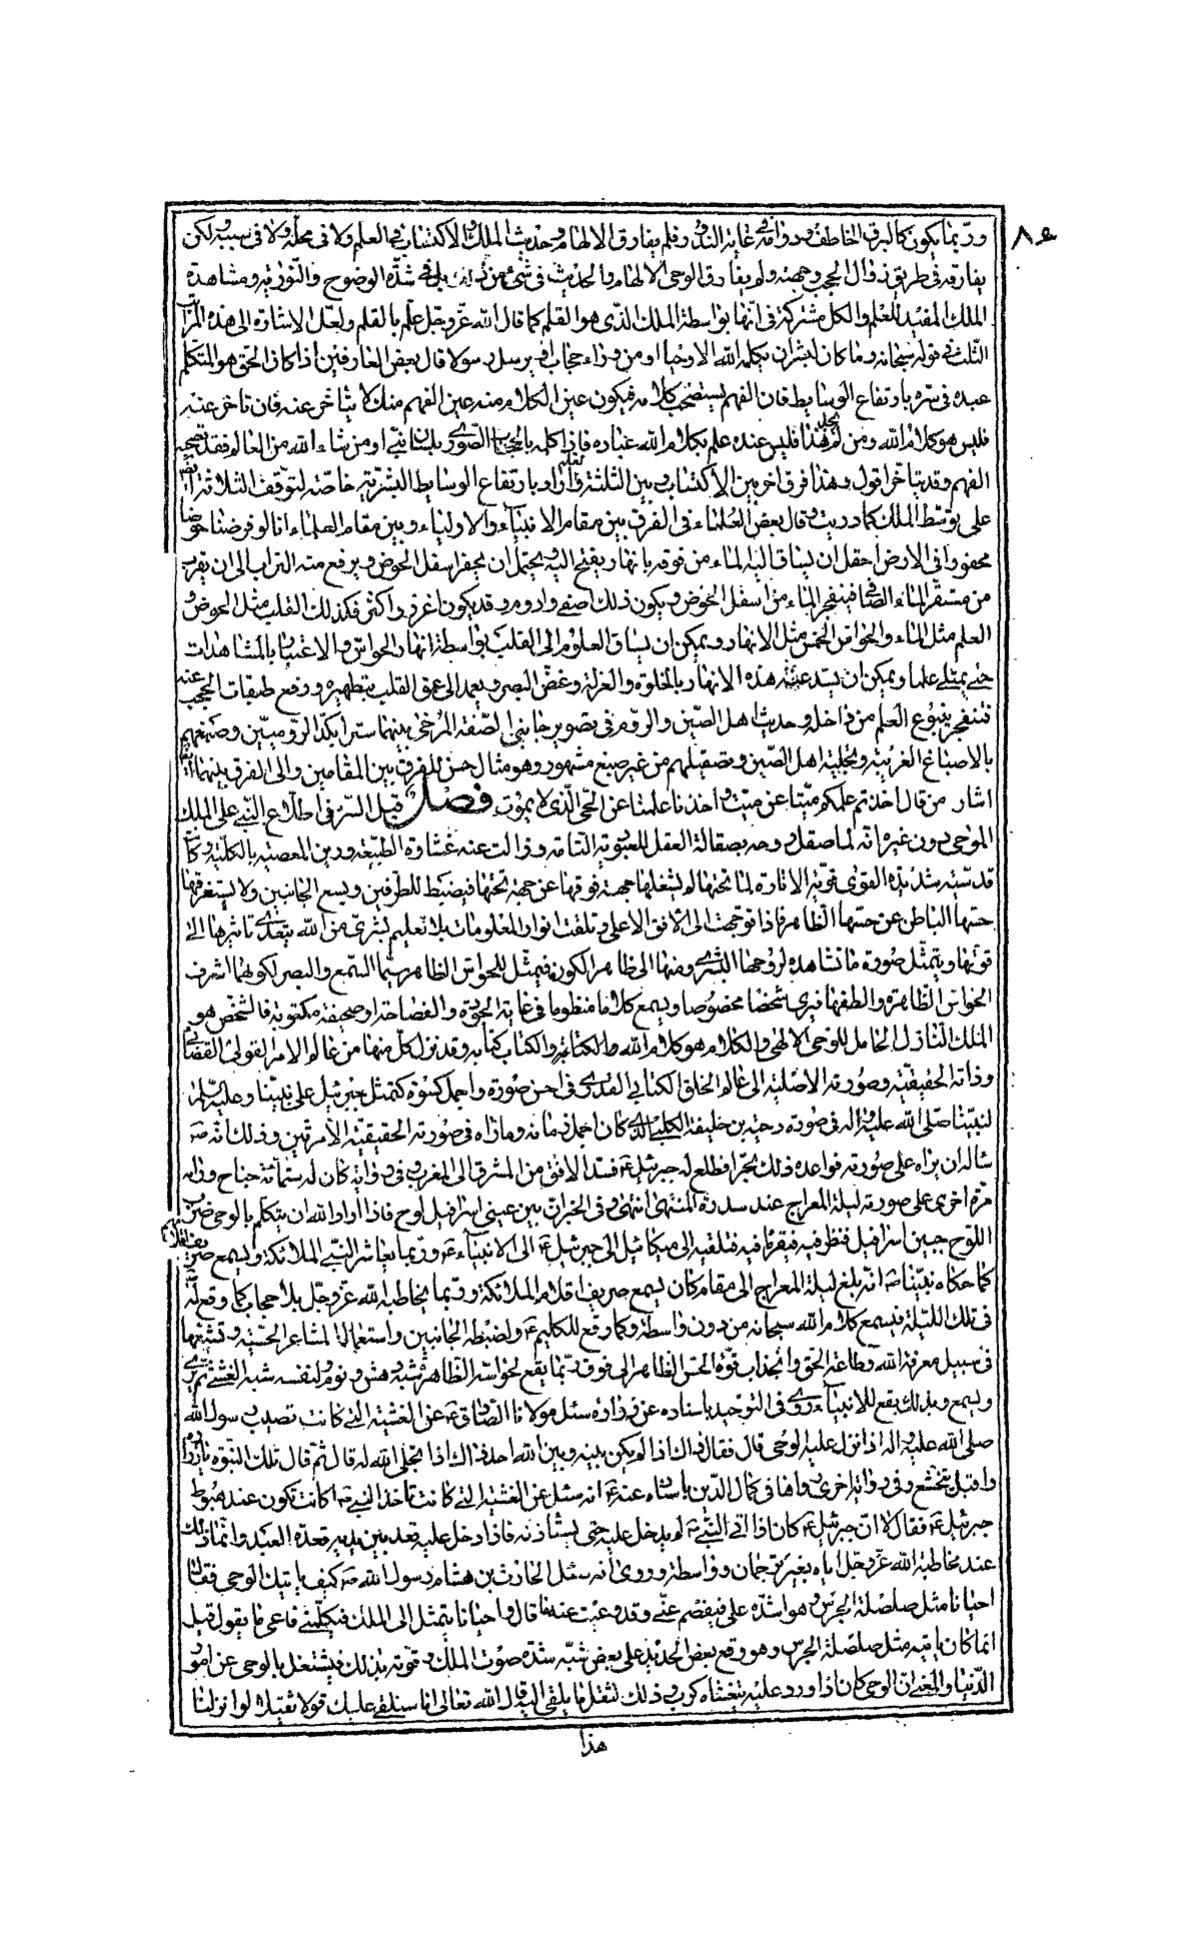 وربما يكون كالبرق الخاطف ودوامه في غاية الندور فلم يفارق الالهام وحديث الملك الاكتساب في العلم ولا في محله ولا في سببه ولكن
يفارقه في طريق زوال الحجب وجهته ولم يفارق الوحى الالهام والحديث في شئ من ذلك بل في شدة الوضوح والنورية ومشاهدة
الملك المفيد للعلم والكل مشتركة في انها بواسطة الملك الذى هو القلم كما قال الله عز وجل علم بالقلم ولعل الاشارة الى هذه المراتب
الثلث في قوله سبحانه وما كان لبشر ان يكلمه الله الا وحيا او من وراء حجاب او يرسل رسولا قال بعض العارفين اذا كان الحق هو المتكلم
عبده في سره بارتفاع الوسايط فان الفهم يستصحب كلامه فيكون عين الكلام منه عين الفهم منك لا يتاخر عنه فان تاخر عنه
فليس هو كلام الله ومن لم يجد هذا فليس عنده علم بكلام الله عباده فاذا كلمه بالحجاب الصورى بلسان نبى او من شاء الله من العالم فقد يصحبه
الفهم وقد يتاخر اقول وهذا فرق اخر بين الاكتساب وبين الثلثة وأراد بارتفاع الوسايط البشرية خاصة لتوقف الثلاثة ايضا
على توسط الملك كما دريت قال بعض العلماء في الفرق بين مقام الانبياء والاولياء وبين مقام العلماء انا لو فرضنا حوضا
محفورا في الارض احتمل ان يساق اليه الماء من فوقه بانهار يفتح اليه ويحتمل ان يحفر اسفل الحوض ويرفع منه التراب الى ان يقرب
من مستقر الماء الصافى فينفجر الماء من اسفل الحوض ويكون ذلك اصفى وادوم وقد يكون اغزر واكثر فكذلك القلب مثل الحوض و
العلم مثل الماء والحواس الخمس مثل الانهار ويمكن ان يساق العلوم الى القلب بواسطة انهار الحواس والاعتبار بالمشاهدات
حتى يمتلى علما ويمكن ان يسد عنه هذه الانهار بالخلوة والعزلة وغض البصر ويعمد الى عمق القلب بتطهيره ورفع طبقات الحجب عنه
فتنفجر ينبوع العلم من داخله وحديث اهل الصين والروم في تصوير جانبى الصفة المرخى بينهما ستر ابكد الروميين وصنعهم
بالاصباغ الغريبة وتجلية اهل الصين وتصقيلهم من غير صبغ مشهور وهو مثال حسن للفرق بين المقامين والى الفرق بينهما ايضا
اشار من قال اخذتم علمكم ميتا عن ميت واخذنا علمنا عن الحى الذى لا يموت فصل قيل السر في اطلاع النبى على الملك
الموحى دون غيره انه لما صقل روحه بصقالة العقل للعبودية التامة وزالت عنه غشاوة الطبيعة ورين المعصية بالكلية وكان
قدسية شديدة القوى قوية الانارة لما تحتها لم يشغلها جهة فوقها عن جهة تحتها فيضبط للطرفين ويسع الجانبين ولا يستغرقها
حسها الباطن عن حسها الظاهر فاذا توجهت الى الافق الاعلى وتلقت انوار المعلومات بلا تعليم بشرى من الله يتعدى تاثيرها الى
قويها ويتمثل صورة ما تشاهده لروحها البشرى ومنها الى ظاهر الكون فيتمثل للحواس الظاهر سيما السمع والبصر لكونهما اشرف
الحواس الظاهرة والطفها فيرى شخصا محسوسا ويسمع كلاما منظوما في غاية الجودة والفصاحة او صحيفة مكتوبة فالشخص هو
الملك النازل الحامل للوحى الالهى والكلام هو كلام الله والكتاب كتابه وقد نزل كل منها من عالم الامر القولى القضائى
وذاته الحقيقية وصورته الاصلية الى عالم الخلق الكتابى القدرى في احسن صورة واجمل كسوة كتمثل جبرئيل على نبينا وعليه السلام
لنبينا صلى الله عليه واله في صورة دحية بن خليفة الكلبى الذى كان اجمل زمانه وما راه في صورته الحقيقية الا مرتين وذلك انه ص
ساله ان يراه على صورته فواعده ذلك بحرا فطلع له جبرئيل ع فسد الافق من المشرق الى المغرب وفى رواية كان له ستمائة جناح وراه
مرة اخرى على صورته ليلة المعراج عند سدرة المنتهى انتهى وفى الخبر ان بين عينى اسرافيل لوح فاذا أراد الله ان يتكلم بالوحى ضرب
اللوح جبين اسرافيل فنظر فيه فيقرء ما فيه فيلقيه الى ميكائيل الى جبرئيل ع الى الانبياء ع وربما يعاشر النبى الملائكة ويسمع صريف اقلامهم
كما حكاه نبينا ص انه بلغ ليلة المعراج الى مقام كان يسمع صريف اقلام الملائكة وربما يخاطبه الله عز وجل بلا حجاب كما وقع له
في تلك الليلة فيسمع كلام الله سبحانه من دون واسطة وكما وقع للكليم ع ولضبطه الجانبين واستعماله المشاعر الحسية وتشيعها
في سبيل معرفة الله وطاعة الحق وانجذاب قوة الحس الظاهر الى فوق ربما يقع لحواسه الظاهرة شبه دهش ونوم ولنفسه شبه الغشى ثم يرى
ويسمع ومثل ذلك يقع للانبياء روى في التوحيد باسناده عن زرارة سئل مولانا الصادق ع عن الغشية التى كانت تصيب رسول الله
صلى الله عليه واله اذا نزل عليه الوحى قال فقال ذاك اذا لم يكن بينه وبين الله احد ذاك اذا تجلى الله له قال ثم قال تلك النبوة يا زرارة
واقبل يتخشع وفى رواية اخرى رواها في كمال الدين باسناده عنه ع انه سئل عن الغشية التى كانت تاخذ النبى ص اكانت تكون عند هبوط
جبرئيل ع فقال لا ان جبرئيل ع كان اذا اتى النبى ص لم يدخل عليه حتى يستأذنه فاذا دخل عليه قعد بين يديه قعدة العبد وانما ذلك
عند مخاطبة الله عز وجل اياه بغير ترجمان وواسطة وروى انه سئل الحارث بن هشام رسول الله ص كيف ياتيك الوحى فقال
احيانا مثل صلصلة الجرس وهو اشده على فيفصم عنى وقد وعيت عنه ما قال واحيانا يتمثل الى الملك فيكلمنى فاعى ما يقول قيل
انما كان ياتيه مثل صلصلة الجرس وهو وقع بعض الحديد على بعض شبه شدة صوت الملك وقوته بذلك فيشتغل بالوحى عن امور
الدنيا والمعنى ان الوحى كان اذا ورد عليه يتغشاه كرب وذلك لثقل ما يلقى اليه قال الله تعالى انا سنلقى عليك قولا ثقيلا لو انزلنا
هذا